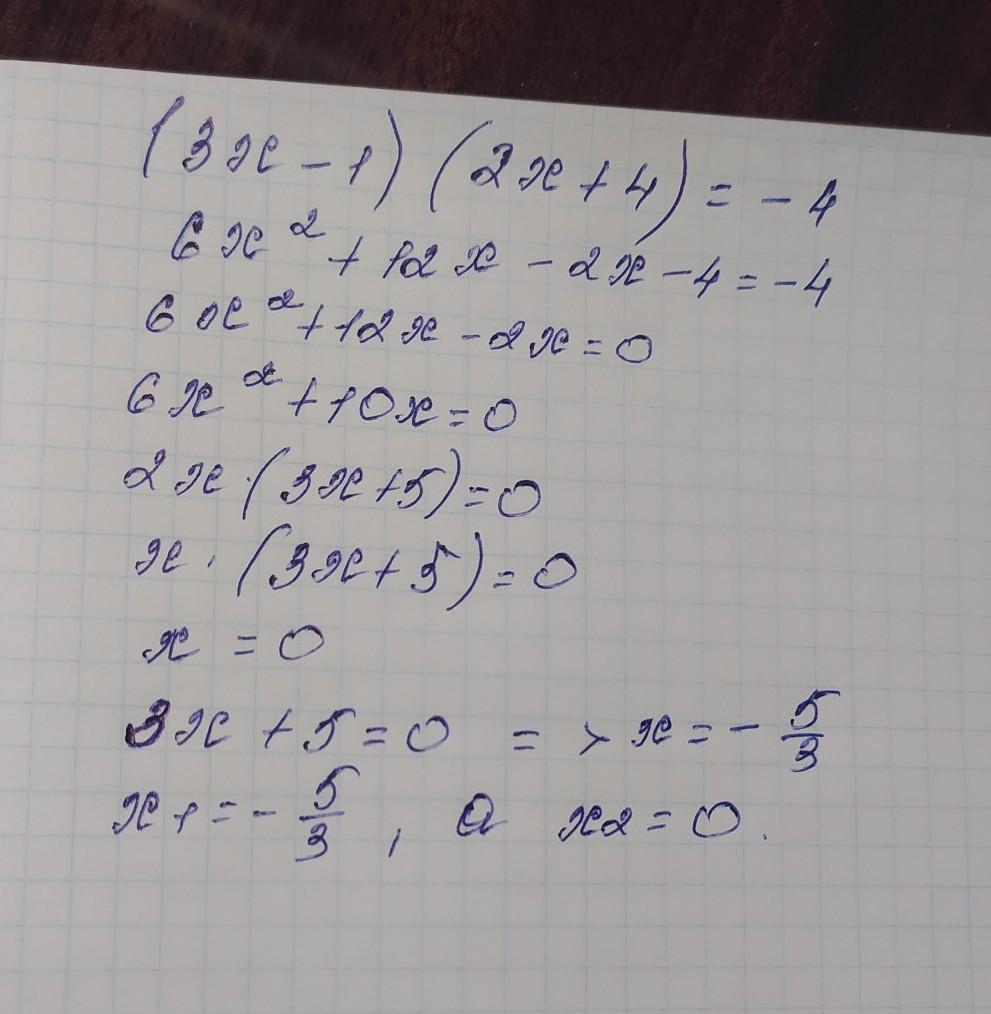 (3x - 1) (2x + 4) = - 4
6x² + 12x - 2x - 4 = - 4
6x² + 12x - 2x = 0
6x² + 10x = 0
2x · (3x + 5) = 0
x · (3x + 5) = 0
x = 0
3x + 5 = 0 => x = - 5/3
x1 = - 5/3 , а x2 = 0.